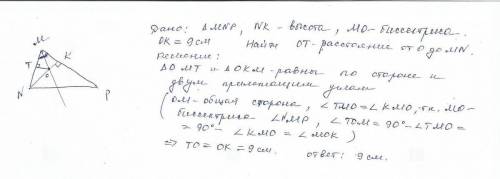 M
K
T
O
N
P
Дано: ΔMNP, NK - высота, MO - биссектриса.
OK = 9 см Найти OT - расстояние от O до MN.
Решение:
ΔOMT и ΔOKM - равны по стороне и
двум прилежащим углам
(OM - общая сторона, ∠TMO = ∠KMO, т.к. MO -
биссектриса ∠NMP, ∠TOM = 90° - ∠TMO =
= 90° - ∠KMO = ∠MOK)
⇒ TO = OK = 9 см. ответ: 9 см.